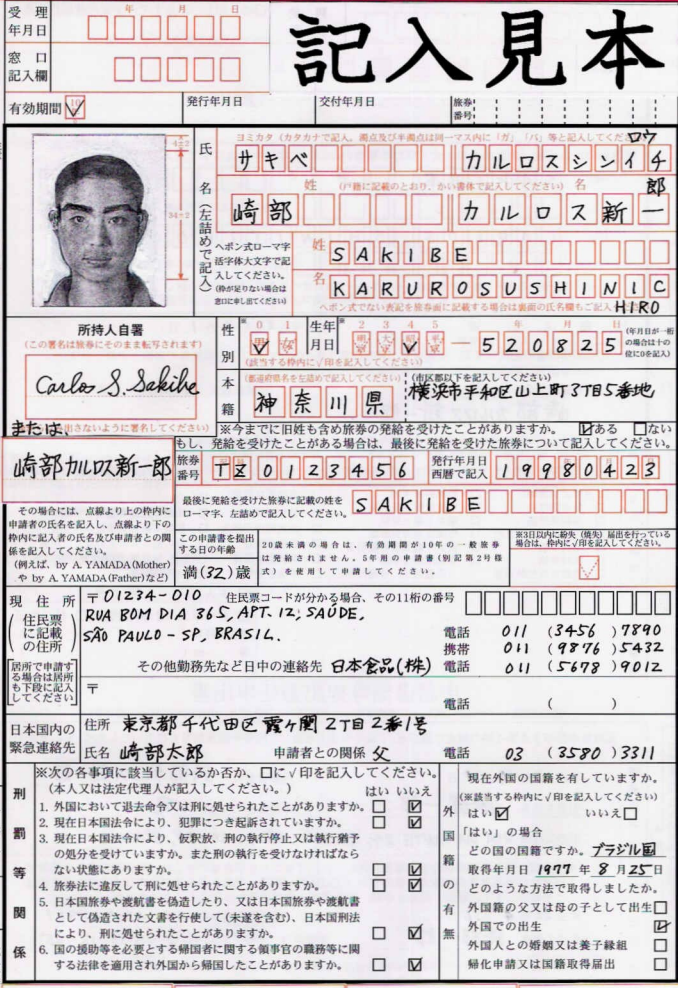 記入見本
受理
年月日
年 月 日
窓口
記入欄
有効期間 10年
発行年月日
交付年月日
旅券
番号
氏名(左詰めで記入)
ヨミカタ(カタカナで記入。濁点及び半濁点は同一マス内に「ガ」「パ」等と記入してください)
サキベ カルロスシンイチ
ロウ
姓 (戸籍に記載のとおり、かい書体で記入してください) 名
崎部 カルロス新一
郎
ヘボン式ローマ字
活字体大文字で記
入してください。
(枠が足りない場合は
窓口に申し出てください)
姓 SAKIBE
名 KARUROSUSHINIC
HIRO
ヘボン式でない表記を旅券面に記載する場合は裏面の氏名欄もご記入
4±2
34±2
所持人自署
(この署名は旅券にそのまま転写されます)
Carlos S. Sakibe
出さないように署名してください)
または、
崎部カルロス新一郎
その場合には、点線より上の枠内に
申請者の氏名を記入し、点線より下の
枠内に記入者の氏名及び申請者との関
係を記入してください。
(例えば、by A. YAMADA(Mother)
や by A. YAMADA(Father)など)
性別
※ 0 1
男 女
生年
月日
※ 2 3 4 5
明 大 昭 平
年 月 日
520825
(年月日が一桁
の場合は十の
位に0を記入)
(該当する枠内に√印を記入してください)
本籍
(都道府県名を左詰めで記入してください)
神奈川県
(市区郡以下を記入してください)
横浜市平和区山上町3丁目5番地
※今までに旧姓も含め旅券の発給を受けたことがありますか。 ☑ある □ない
もし、発給を受けたことがある場合は、最後に発給を受けた旅券について記入してください。
旅券
番号
TZ0123456
発行年月日
西暦で記入
19980423
最後に発給を受けた旅券に記載の姓を
ローマ字、左詰めで記入してください。
SAKIBE
この申請書を提出
する日の年齢
満(32)歳
20歳未満の場合は、有効期間が10年の一般旅券
は発給されません。5年用の申請書(別記第2号様
式)を使用して申請してください。
※3日以内に紛失(焼失)届出を行っている
場合は、枠内に√印を記入してください。
現住所
(住民票に記載の住所)
〒01234-010 住民票コードが分かる場合、その11桁の番号
RUA BOM DIA 365, APT. 12, SAÚDE,
SÃO PAULO - SP, BRASIL.
電話 011 (3456) 7890
携帯 011 (9876) 5432
その他勤務先など日中の連絡先 日本食品(株) 電話 011 (5678) 9012
居所で申請す
る場合は居所
も下段に記入
してください
〒
電話 ( )
日本国内の
緊急連絡先
住所 東京都千代田区霞ヶ関2丁目2番1号
氏名 崎部太郎 申請者との関係 父 電話 03 (3580) 3311
刑罰等関係
※次の各事項に該当しているか否か、□に√印を記入してください。
(本人又は法定代理人が記入してください。) はい いいえ
1. 外国において退去命令又は刑に処せられたことがありますか。 □ ☑
2. 現在日本国法令により、犯罪につき起訴されていますか。 □ ☑
3. 現在日本国法令により、仮釈放、刑の執行停止又は執行猶予
の処分を受けていますか。また刑の執行を受けなければなら
ない状態にありますか。 □ ☑
4. 旅券法に違反して刑に処せられたことがありますか。 □ ☑
5. 日本国旅券や渡航書を偽造したり、又は日本国旅券や渡航書
として偽造された文書を行使して(未遂を含む)、日本国刑法
により、刑に処せられたことがありますか。 □ ☑
6. 国の援助等を必要とする帰国者に関する領事官の職務等に関
する法律を適用され外国から帰国したことがありますか。 □ ☑
外国籍の有無
現在外国の国籍を有していますか。
(※該当する枠内に√印を記入してください)
はい☑ いいえ□
「はい」の場合
どの国の国籍ですか。ブラジル国
取得年月日 1977年8月25日
どのような方法で取得しましたか。
外国籍の父又は母の子として出生□
外国での出生 ☑
外国人との婚姻又は養子縁組 □
帰化申請又は国籍取得届出 □